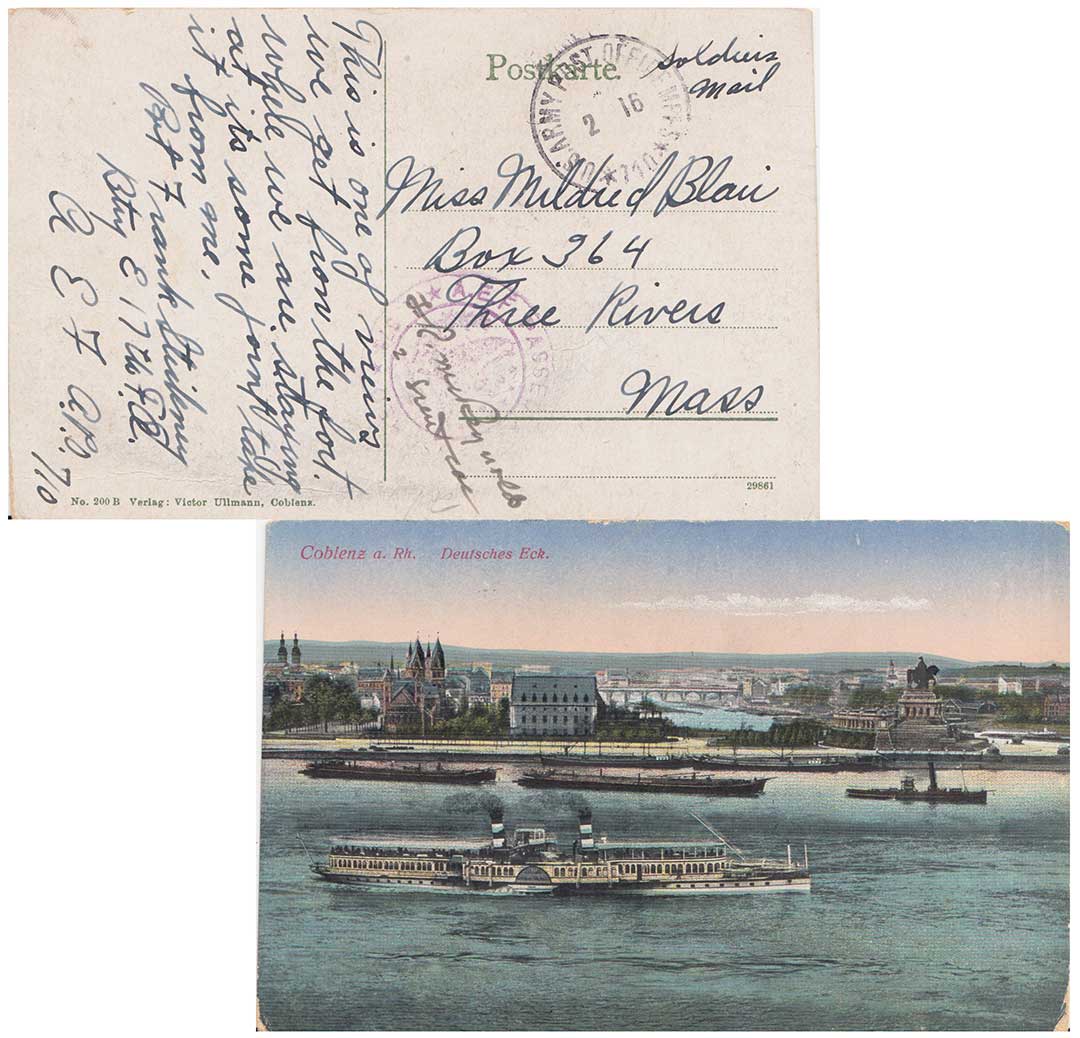 Postkarte.
Soldiers
Mail
U.S. ARMY POST OFFICE M.P.E.S. ★ 710 ★
2 16
Miss Mildred Blair
Box 364
Three Rivers
Mass
This is one of views
we get from the fort
where we are staying
at its some joint take
it from me,
Pvt Frank
Bty E 17th F.A.
A E F A.P.O. 710
★ A.E.F. PASSE
No. 200 B Verlag: Victor Ullmann, Coblenz.
29861
Coblenz a. Rh. Deutsches Eck.